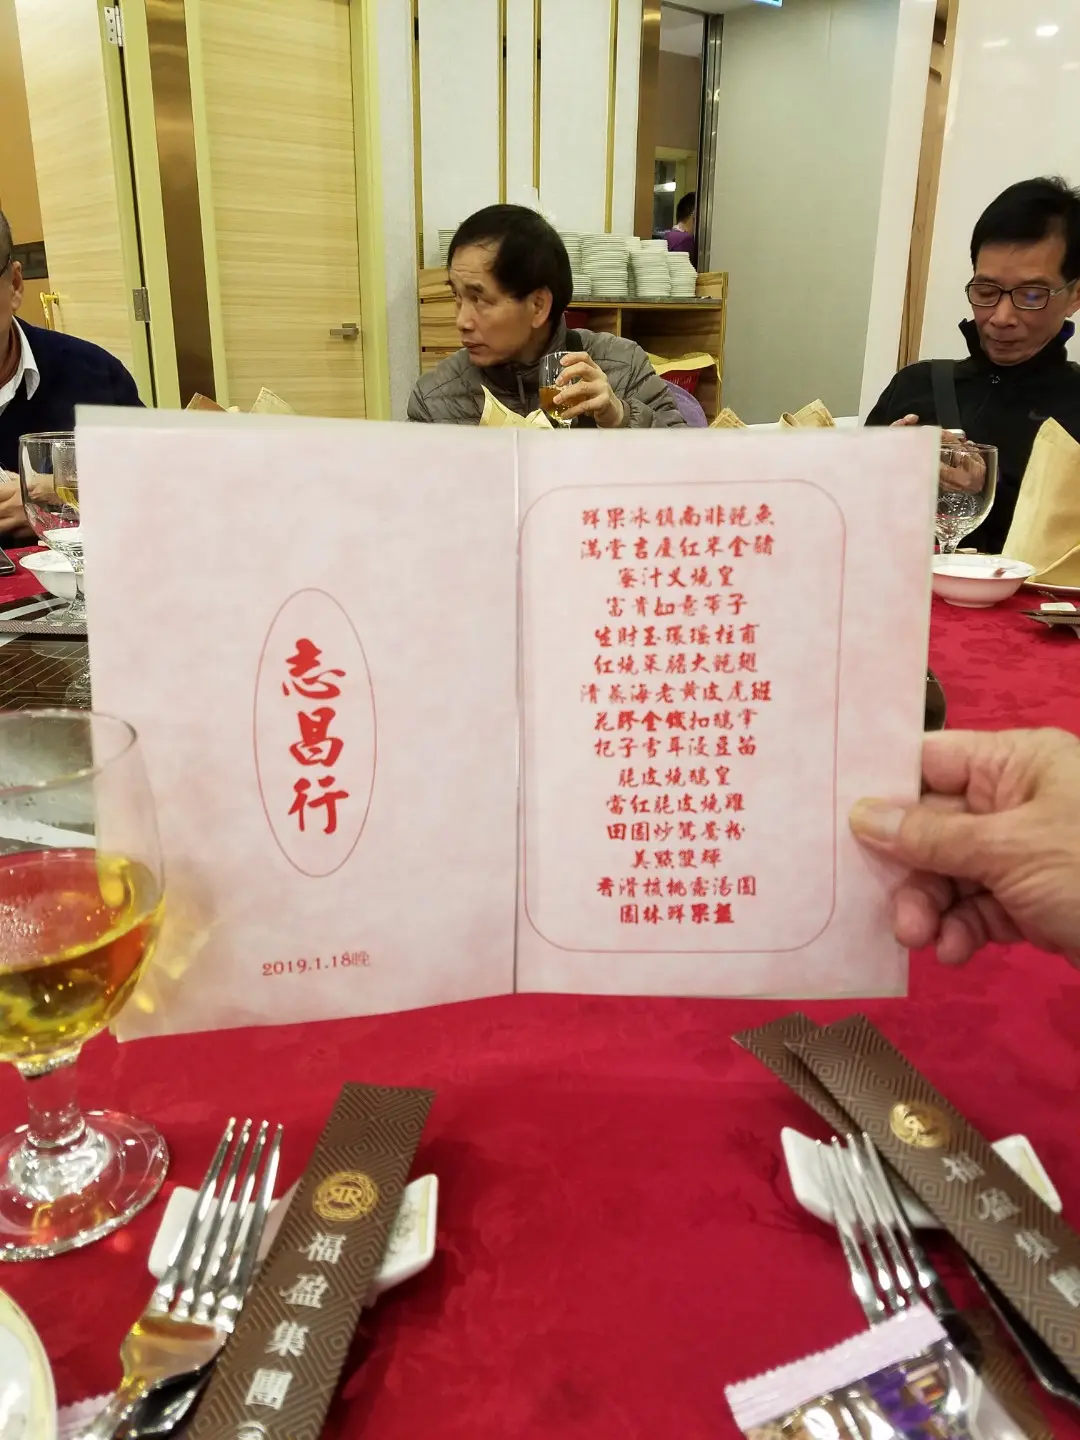 志昌行
2019.1.18晚
鮮果冰鎮南非鮑魚
滿堂吉慶紅米金豬
蜜汁叉燒皇
富貴如意帶子
生財玉環瑤柱甫
紅燒菜膽大鮑翅
清蒸海老黃皮虎班
花膠金錢扣鵝掌
杞子雪耳浸豆苗
脆皮燒鵝皇
當紅脆皮燒雞
田園炒鴛鴦粉
美點雙輝
香滑核桃露湯圓
園林鮮果盤
福盈集團
福盈集團